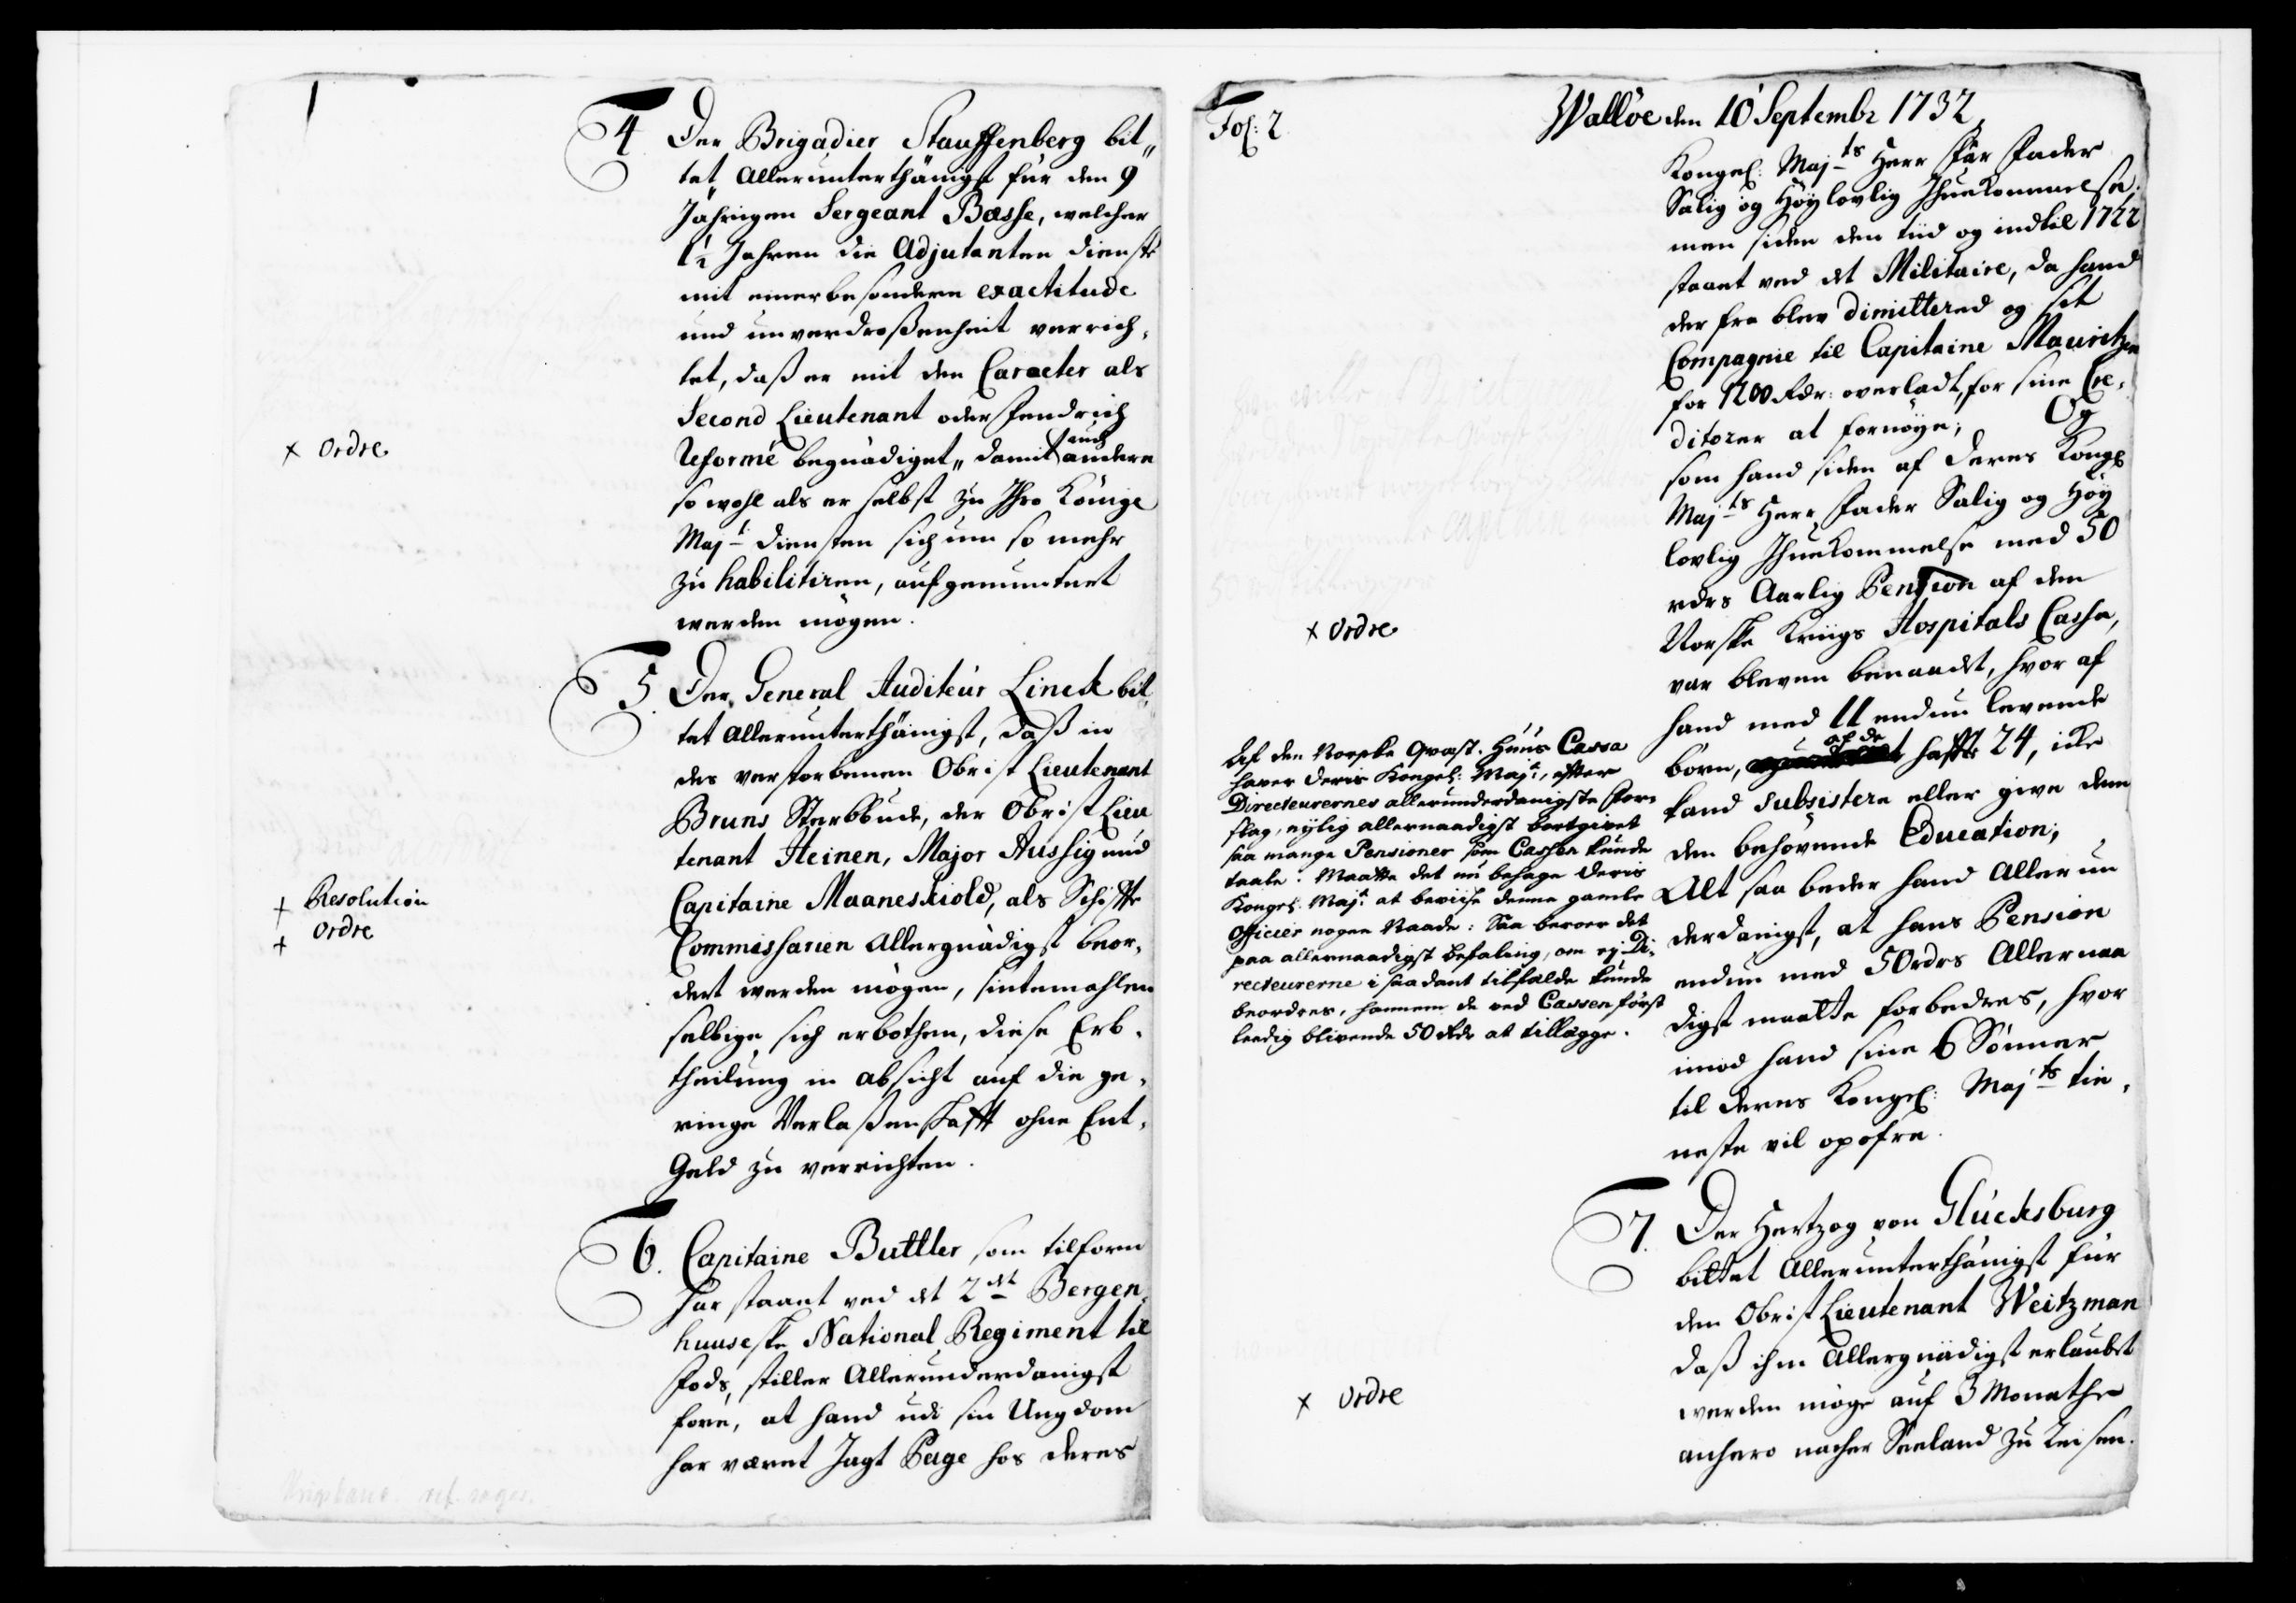 4 Der Brigadier Stauffenberg bit„
tet„ allerunterthänigst für den 9
Jährigen Sergeant Basse, welcher
1½ Jahren die Adjutanten dienste
mit einer besondern exactitude
und unverdroßenheit verrich,
tet, daß er mit den Caracter als
Second Lieutenant oder Fendrich
Reformé begnädiget„ damit auch andere
so wohl als er selbst zu Ihro Königl
Majt: diensten sich um so mehr
zu habilitiren, aufgemuntert
werden mögen.
× Ordre
5. Der General Auditeur Linck bit„
tet allerunterthänigst, daß in
des verstorbenen Obrist Lieutenant
Bruns Sterbbude, der Obrist Lieu
tenant Heinen, Major Aussig und
Capitaine Maaneskiold, als Schiffte
Commissarien allergnädigst beor,
dert werden mögen, sintemahlen
selbige sich erbothen, diese Erb,
theilung in absicht auf die ge,
ringe Verlaßenschafft ohne Ent,
Geld zu verrichten.
+ Resolution
+ Ordre
6. Capitaine Buttler som tilforn
har staaet ved det 2det Bergen,
huusske National Regiment til
Fods, stiller allerunderdanigst
fore, at hand udi sin Ungdom
har været Jagt Page hos deres
Fol: 2
Walløe den 10 Septembr 1732,
Kongel: Majts Herr Far Fader
Salig og Høylovlig Ihukommelse
men siden den tiid og indtil 1722
staaet ved det Militaire, da hand
der fra blev dimittered og sit
Compagnie til Capitaine Mauritzen
for 1200 Rdr: overladt, for sine Cre,
ditorer at fornøye; Og
som hand siden af deres Kongl
Majts Herr Fader Salig og Høy
lovlig Ihukommelse med 50
rdrs Aarlig Pension af den
Norske Kriigs Hospitals Cassa,
var bleven benaadet, hvor af
hand med 11 endnu levende
børn, af de hafte 24, icke
kand subsistere eller give dem
den behøvende Education;
Alt saa beder hand allerun
derdanigst, at hans Pension
endnu med 50 rdrs allernaa
digst maatte forbedres, hvor
imod hand sine 6 Sønner
til deres Kongel: Majts tie,
neste vil opofre.
× Ordre
Af den Norske Qvæst. Huus Cassa
haver deris Kongel: Majt:, efter
Directeurernes allerunderdanigste For
slag, nylig allernaadigst bortgivet
saa mange Pensioner som Cassen kunde
taale: Maatte det nu behage deris
Kongel: Majt: at beviise denne gamle
Officier nogen Naade: Saa beroer det
paa allernaadigst befaling, om ej Di„
recteurerne i saadant tilfælde kunde
beordres, hannem de ved Cassen først
leedig blivende 50 Rdr at tillægge.
7. Der Hertzog von Glücksburg
bittet allerunterthänigst für
den Obrist Lieutenant Weitzman
daß ihm allergnädigst erlaubt
werden möge auf 3 Monathe
anhero nacher Seeland zu Reisen.
× Ordre